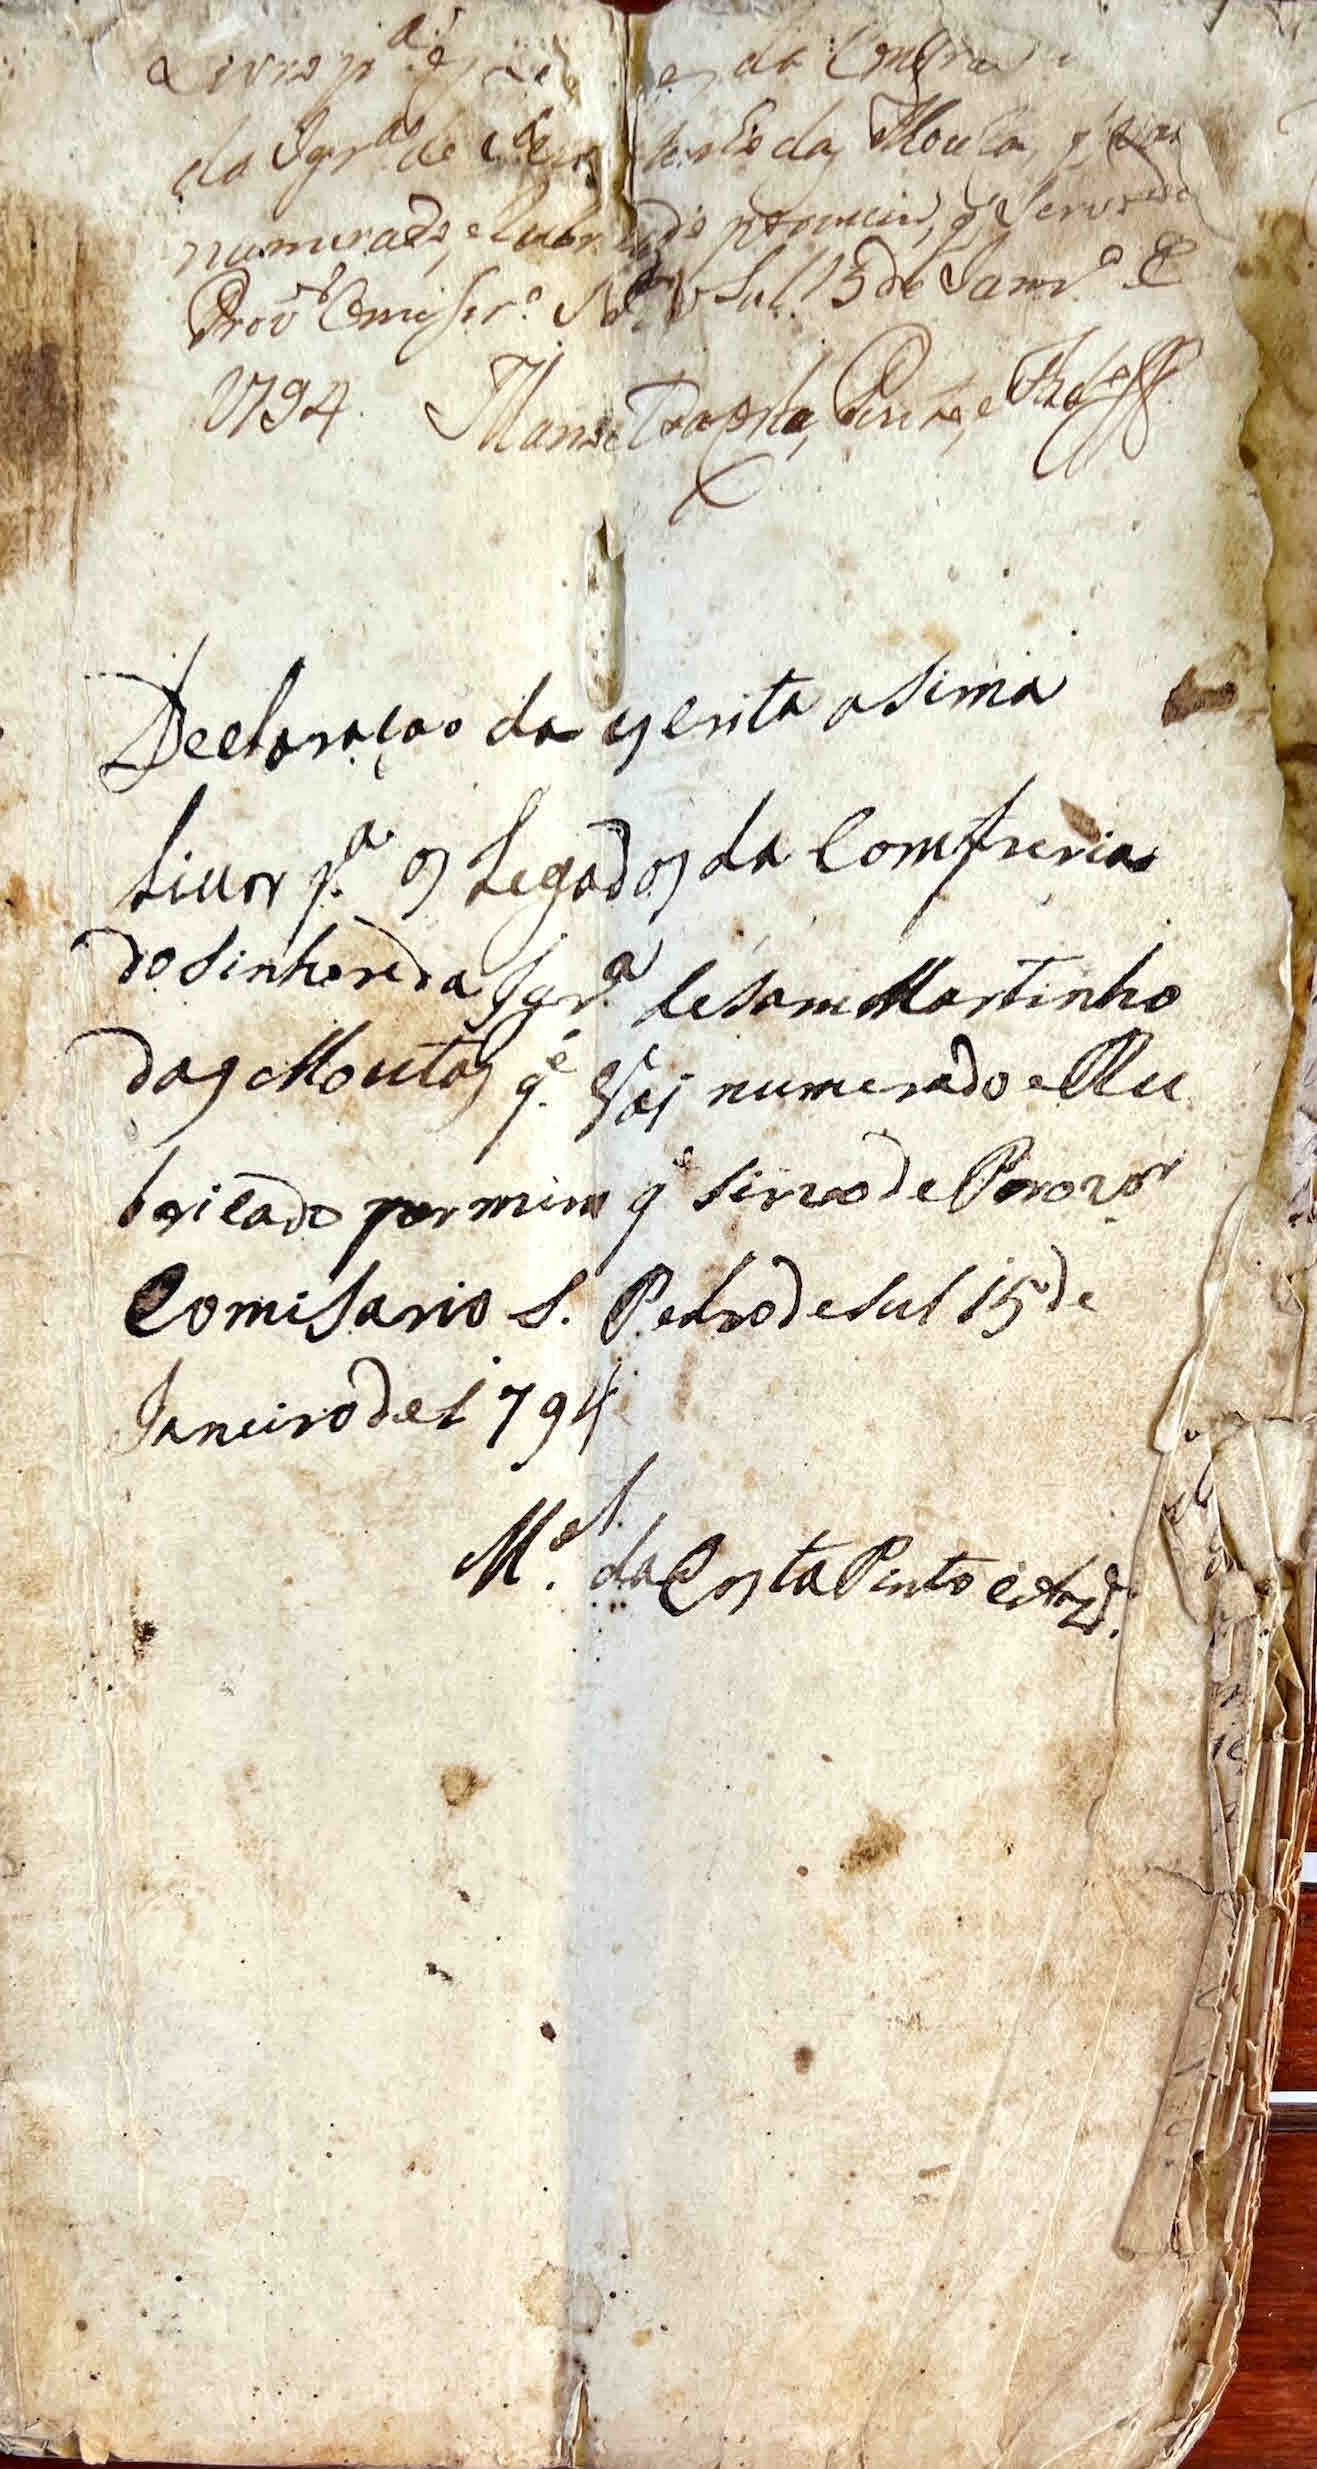 Livro p.ª da Confra
da Igr.ª de da Mouta, q
numerado, e Rubricado por mim, q̃ Servo de
Prov.or Comiss.rº Sul 15 de Janr.º
1794. Manoel da Costa, Pinto, e
Declaraçao da escrita asima
Liuor p.ª os Legados da Comfreria
do sinhor da Igr.ª de Sam Martinho
das Moutas q.ᵉ Vai numerado e Ru
bricado por mim qᵉ sirvo de Provor
Comisario S. Pedro de sul 15 de
Janeiro de 1794
M.el da Costa Pinto